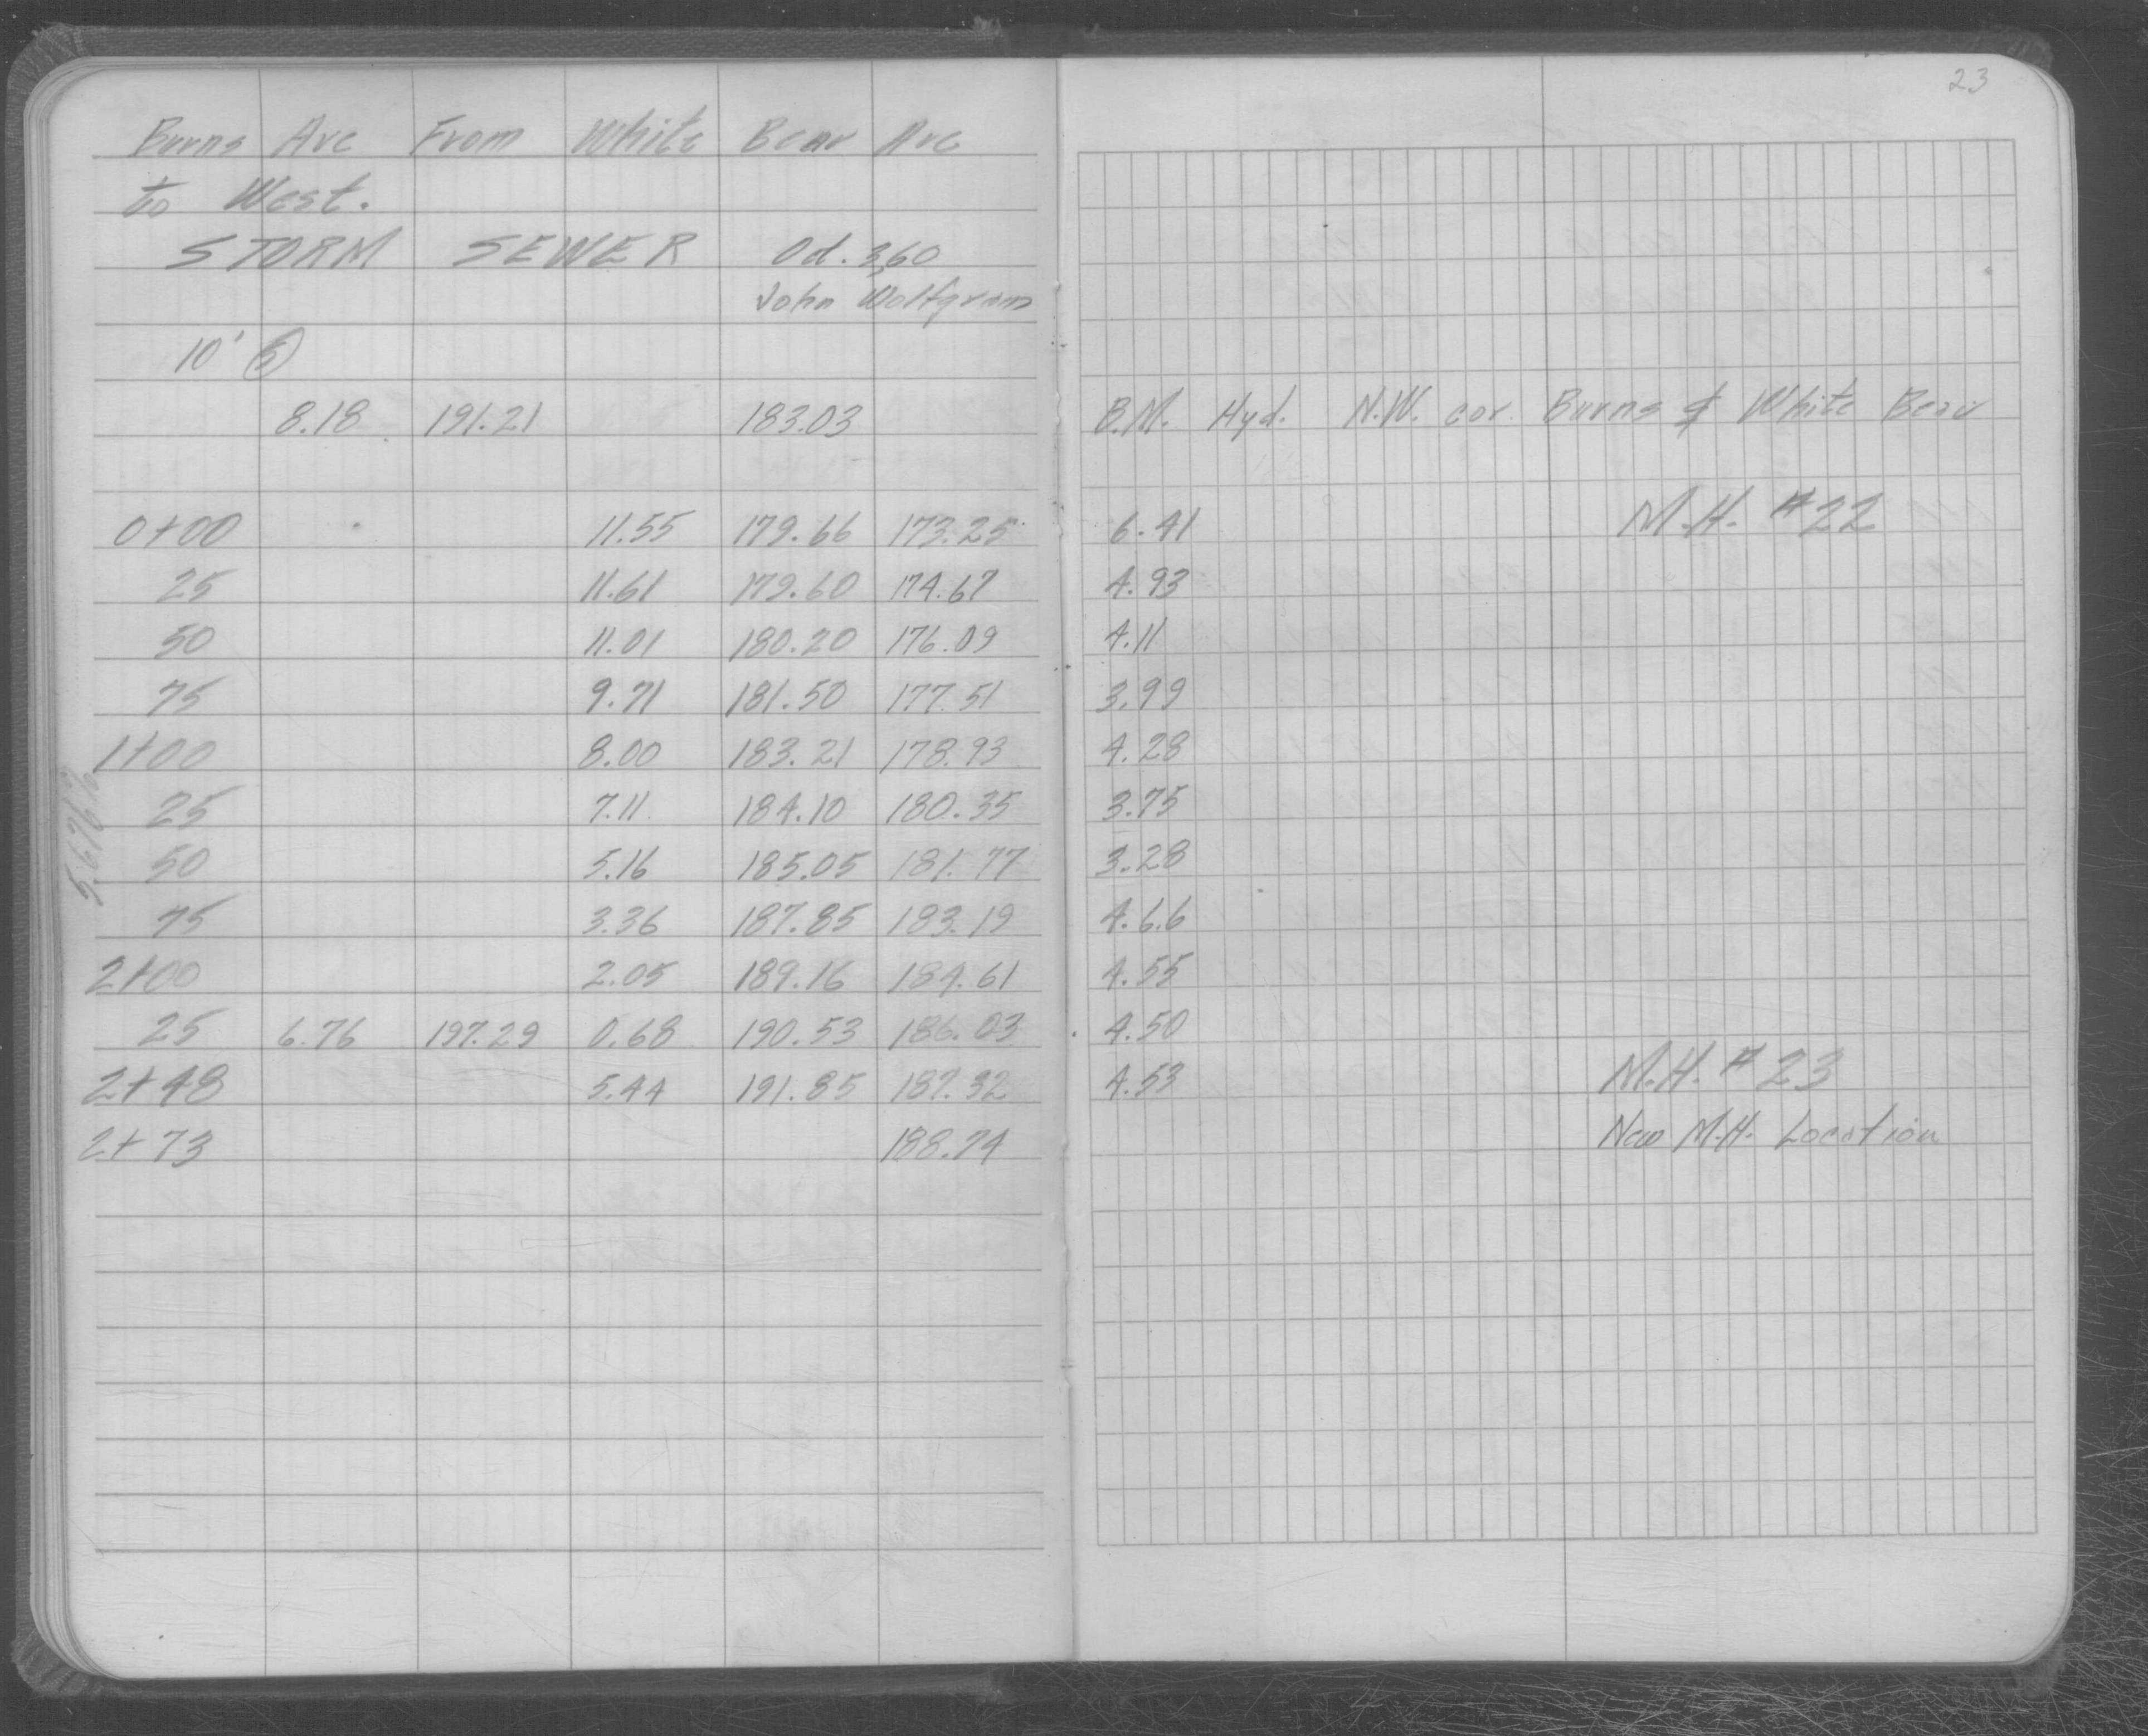 23
Burns Ave From White Bear Ave
to West.
STORM SEWER Od. 3,60
John Wolfgram
10' Ⓢ
8.18 191.21 183.03 B.M. Hyd. N.W. cor. Burns & White Bear
0+00 11.55 179.66 173.25 6.41 M.H. #22
25 11.61 179.60 174.67 4.93
50 11.01 180.20 176.09 4.11
75 9.71 181.50 177.51 3.99
1+00 8.00 183.21 178.93 4.28
25 7.11 184.10 180.35 3.75
50 5.16 185.05 181.77 3.28
75 3.36 187.85 183.19 4.66
2+00 2.05 189.16 184.61 4.55
25 6.76 197.29 0.68 190.53 186.03 4.50
2+48 5.44 191.85 187.32 4.53 M.H. #23
2+73 188.74 New M.H. Location